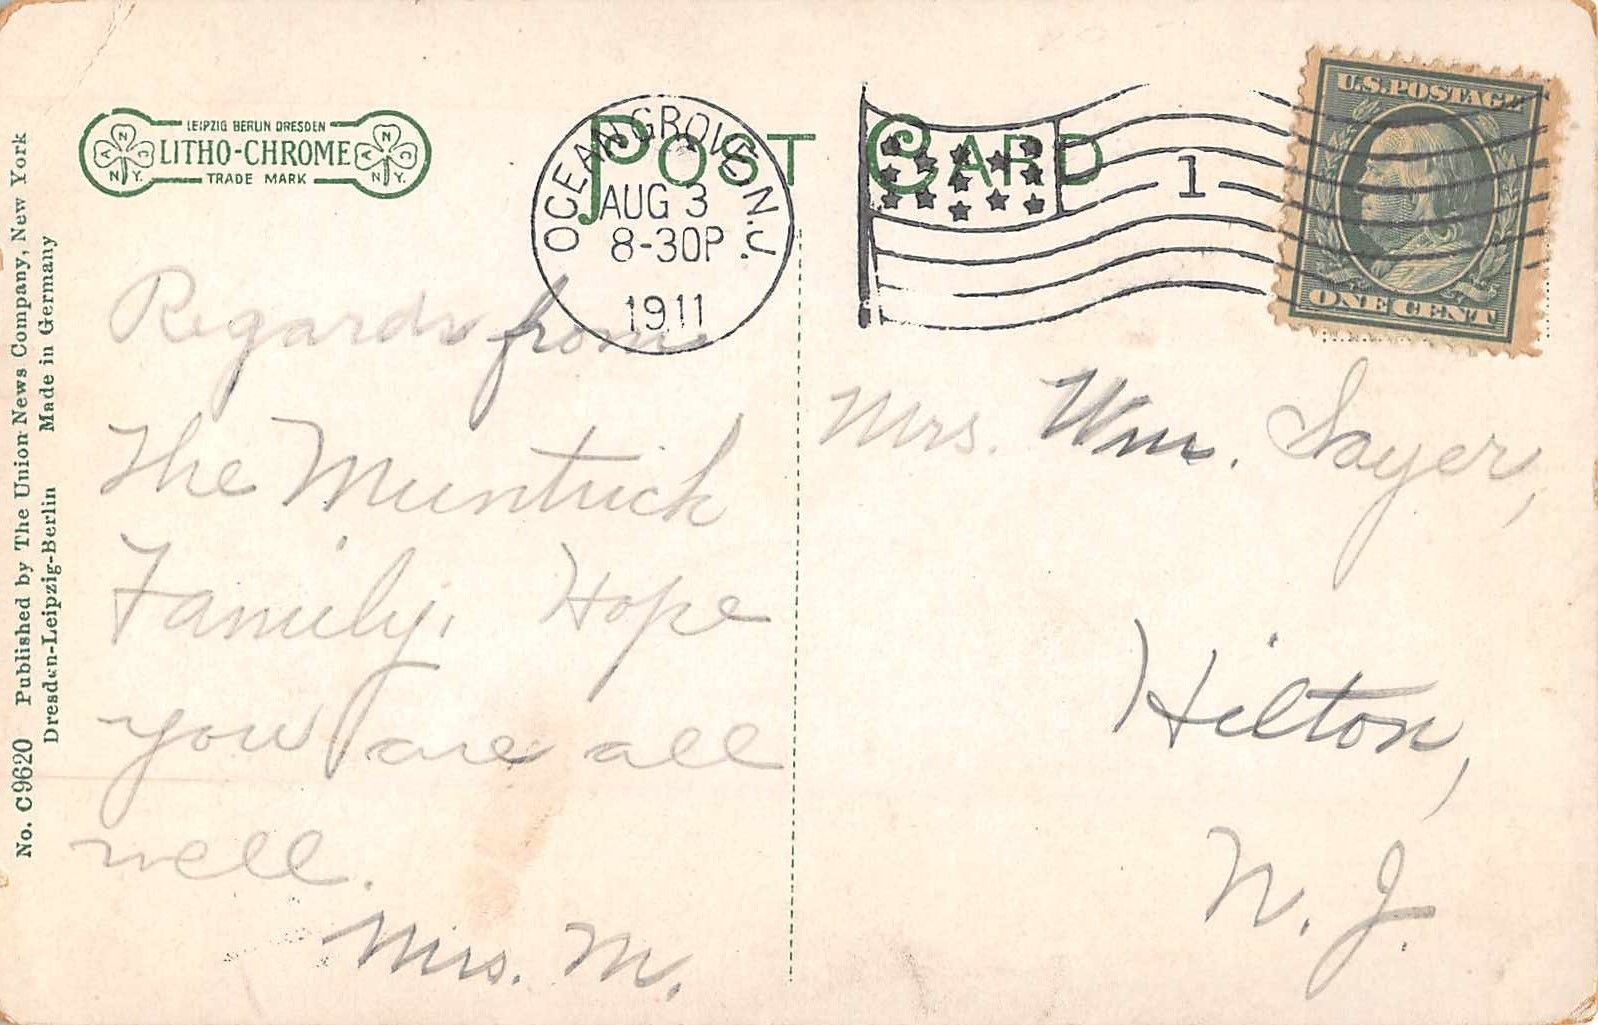 LEIPZIG BERLIN DRESDEN
LITHO-CHROME
TRADE MARK
A N C N.Y.
A N C N.Y.
POST CARD
OCEAN GROVE N.J.
AUG 3
8-30P
1911
1
U.S. POSTAGE
ONE CENT
No. C9620 Published by The Union News Company, New York
Dresden-Leipzig-Berlin Made in Germany
Regards from
The Muntrick
Family. Hope
you are all
well.
Mrs. M.
Mrs. Wm. Sayer,
Hilton,
N. J.